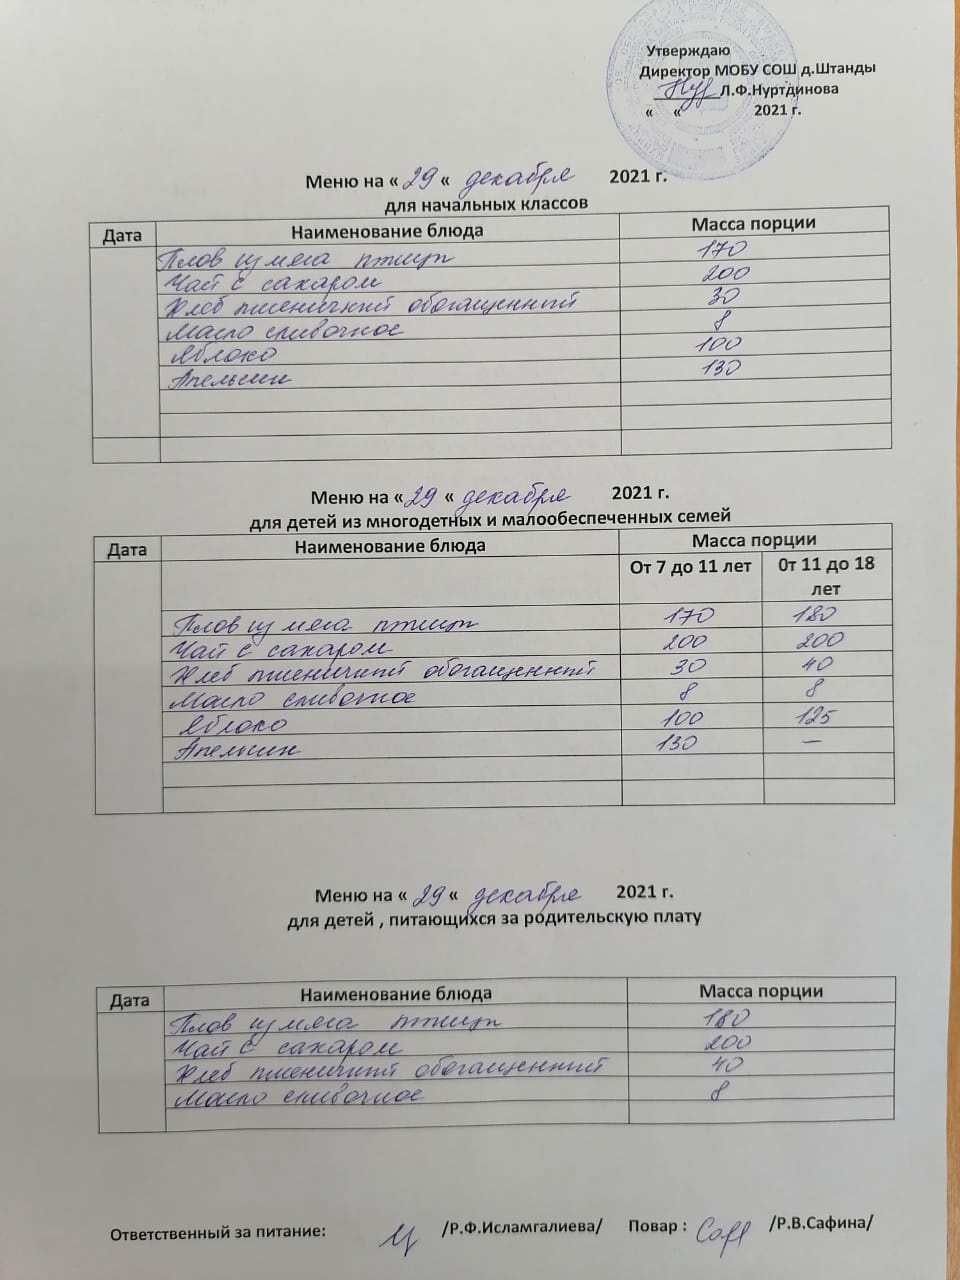 Утверждаю
Директор МОБУ СОШ д.Штанды
Л.Ф.Нуртдинова
« « 2021 г.
Меню на « 29 « декабря 2021 г.
для начальных классов
Дата Наименование блюда Масса порции
Плов из мяса птицы 170
Чай с сахаром 200
Хлеб пшеничный обогащенный 30
Масло сливочное 8
Яблоко 100
Апельсин 130
Меню на « 29 « декабря 2021 г.
для детей из многодетных и малообеспеченных семей
Дата Наименование блюда Масса порции
От 7 до 11 лет 0т 11 до 18
лет
Плов из мяса птицы 170 180
Чай с сахаром 200 200
Хлеб пшеничный обогащенный 30 40
Масло сливочное 8 8
Яблоко 100 125
Апельсин 130 —
Меню на « 29 « декабря 2021 г.
для детей , питающихся за родительскую плату
Дата Наименование блюда Масса порции
Плов из мяса птицы 180
Чай с сахаром 200
Хлеб пшеничный обогащенный 40
Масло сливочное 8
Ответственный за питание: /Р.Ф.Исламгалиева/ Повар : /Р.В.Сафина/